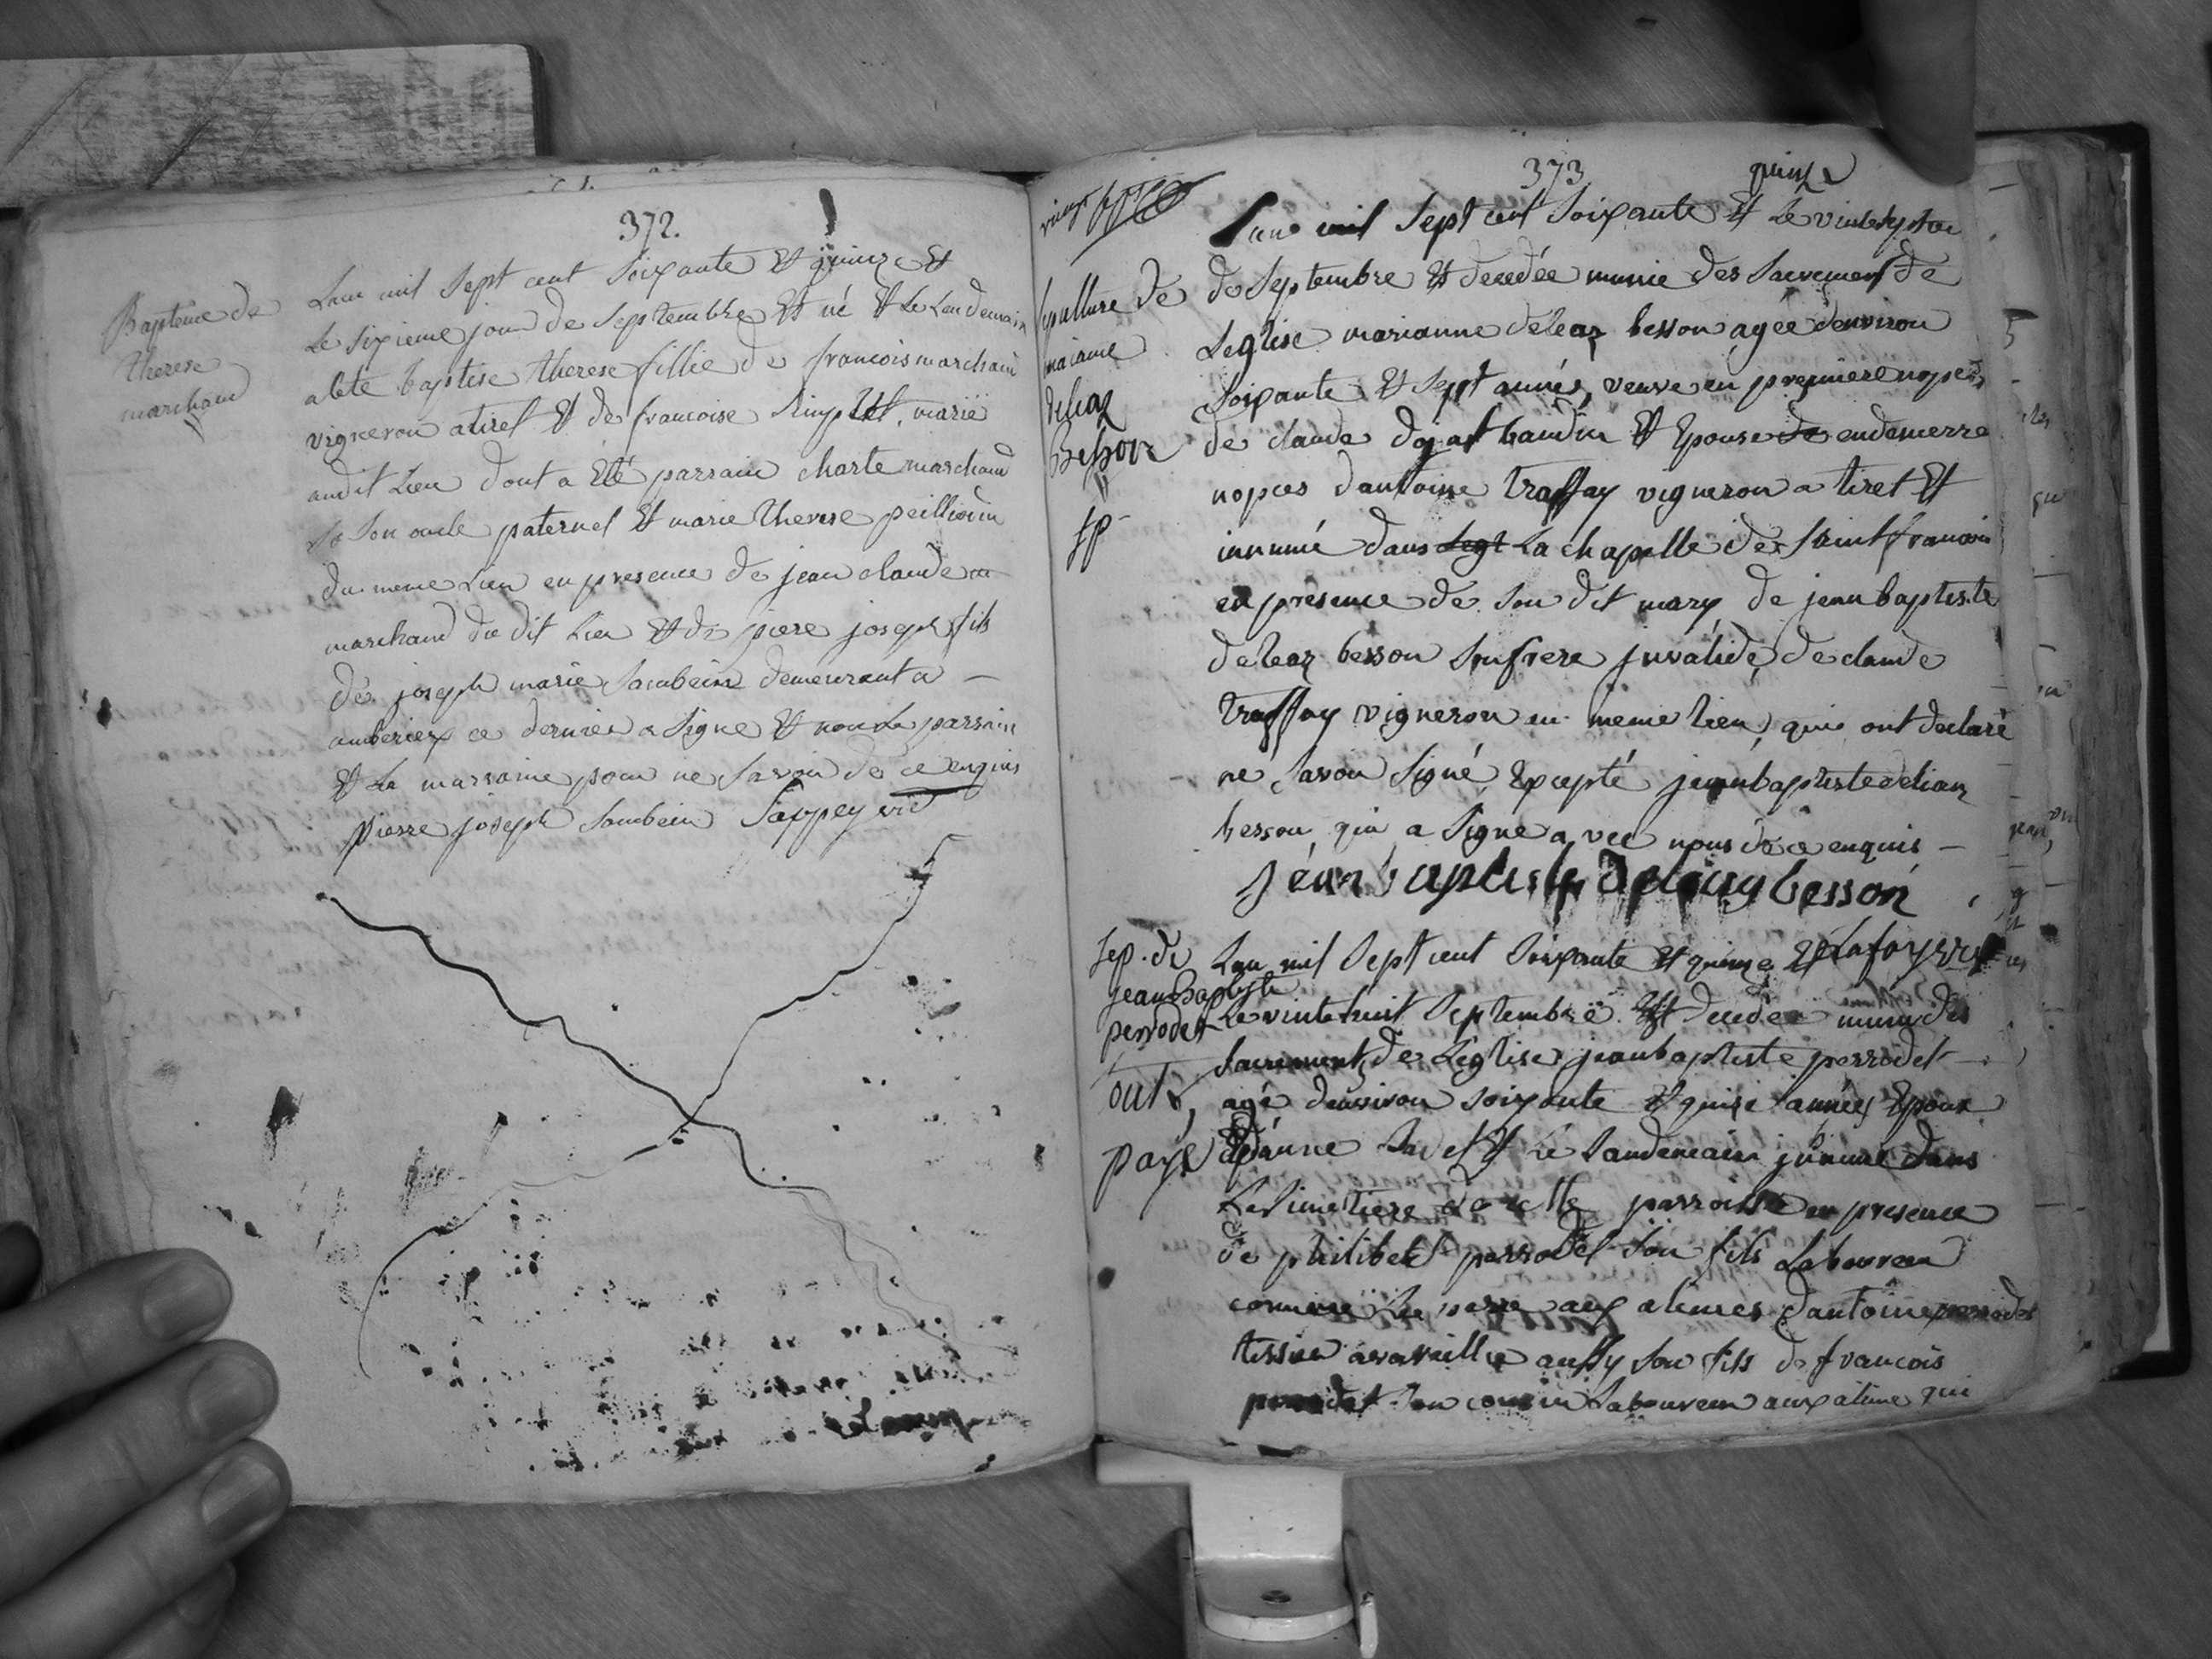 372.
Baptême de
therese
marchand
Lan mil sept cent soixante et quinze et
le sixieme jour de septembre est né et le lendemain
a été baptisé therese fillie de francois marchand
vigneron a tiret et de francoise marié
audit lieu dont a été parrain charle marchand
son oncle paternel et marie therese
du meme lieu en presence de jean claude
marchand du dit lieu et de piere joseph fils
de joseph marie sambein demeurant a
amberiex ce dernier a signe et non le parrain
et la marraine pour ne savoir de ce enquis
pierre joseph sambein Sappey vic
373
quinze
vingt sept
Sepulture de
mariane
deleaz
Besson
sp
Lan mil sept cent soixante et le vintesept
de septembre est decedée munie des sacremens de
Leglise marianne deleaz besson agée denviron
soixante et sept année, veuve en premiere nopces
de claude baudin et Epouse de endernierre
nopces dantoine traffay vigneron a tiret et
innumé dans Legl La chapelle de saint francois
en presence de son dit mary de jean baptiste
deleaz besson son frere invalide de claude
traffay vigneron au meme lieu, qui ont declaré
ne savoir signé Excepté jeanbaptiste deliaz
besson qui a signe avec nous de ce enquis
jéan baptiste Deleaz besson
Lafay vic
Sep. de
jean Baptiste
perrodet
out
payé
Lan mil sept cent soixante et quinze et
le vintehuit septembre Est decedé muni des
sacrements de Léglise jeanbaptiste perrodet
agé denviron soixante et quinze années Epoux
et le landemain innumé dans
Le simetiere de cette parroisse en presence
de philibert perrodet son fils Laboureur
comme Le pere aux alimes dantoine perrodet
tissier a vareille aussy son fils de francois
perrodet son cousin Laboureur aux alime qui